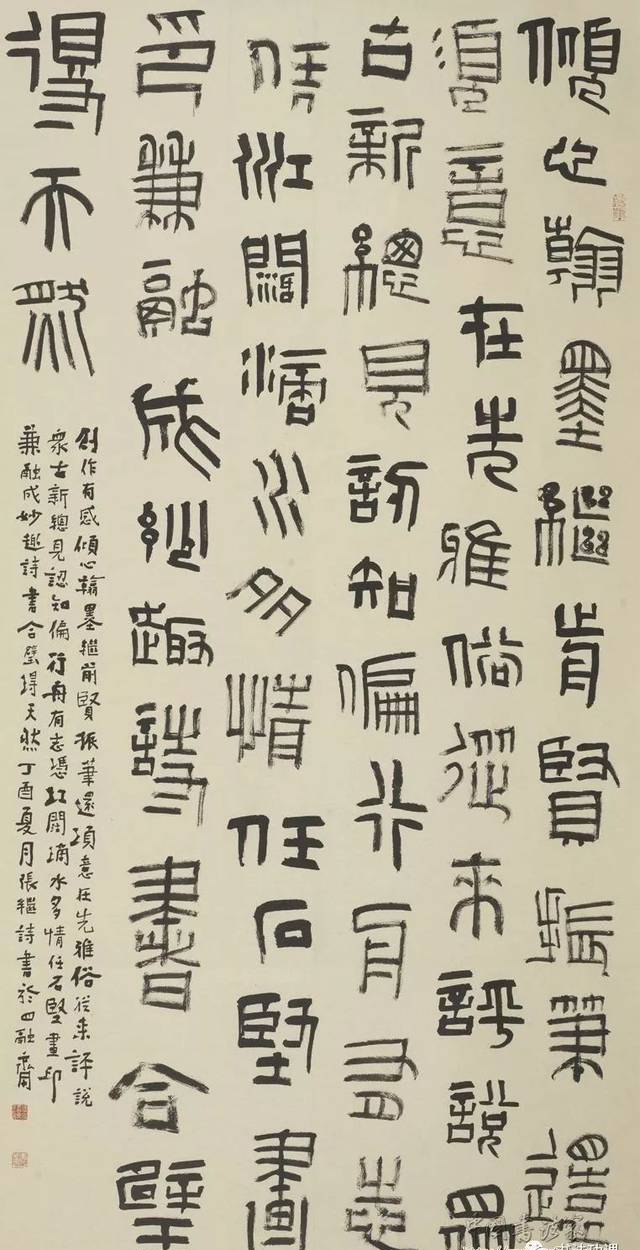 傾心翰墨繼前賢振筆還
須意在先雅俗從來評說眾
古新總見認知偏行舟有志
凭江闊滴水多情任石堅畫
印兼融成妙趣詩書合璧
得天然
創作有感傾心翰墨繼前賢振筆還須意在先雅俗從来評說
眾古新總見認知偏行舟有志憑江闊滴水多情任石堅畫印
兼融成妙趣詩書合璧得天然丁酉夏月張繼詩書於四融齋